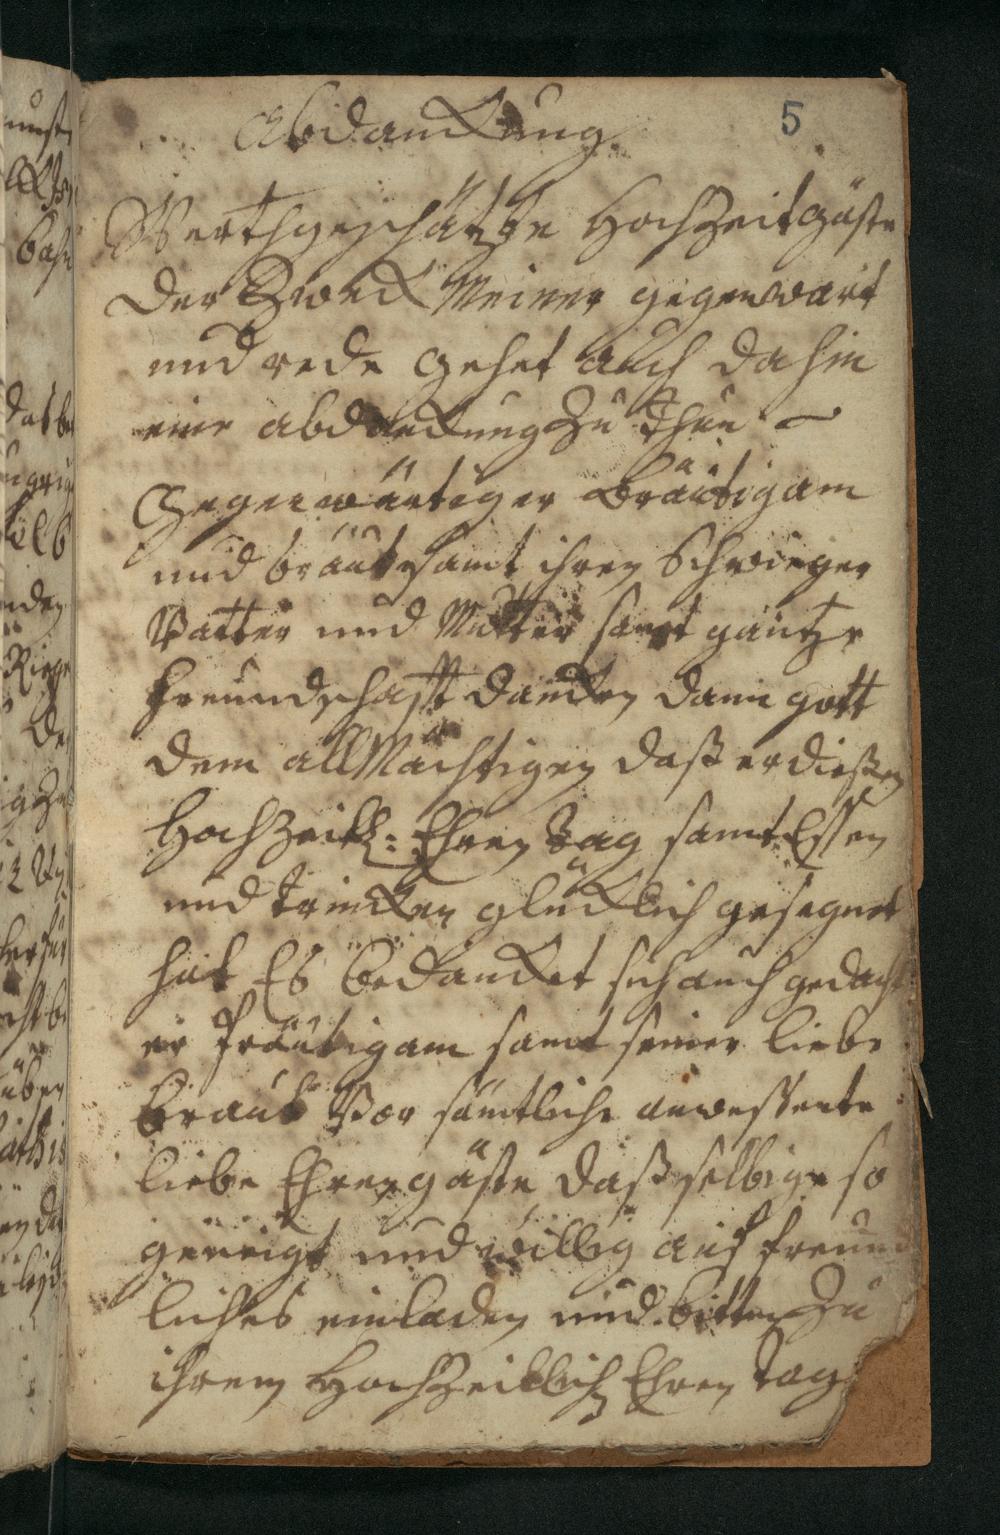 5
Abdanckung
Werthgeschätzte Hochzeitgäste
Der Zweck Meiner gegenwart
und rede gehet auch dahin
eine abdanckung zu thun
Gegenwärtiger Bräutigam
und bräut samt ihren Schwieger
Vatter und Mutter samt gantze
freundschafft dancken dann gott
dem allMächtigen daß er dießen
Hochzeitl: Ehren tag samt Essen
und trincken glücklich gesegnet
hat Es bedancket sich auch gedacht
er bräutigam samt seiner liebe
braut Vor sämtliche anweßente
liebe Ehrengäste daß selbige so
geneigt und willig auf freund
liches einladen und bitten zu
ihrem Hochzeitlich Ehren tag